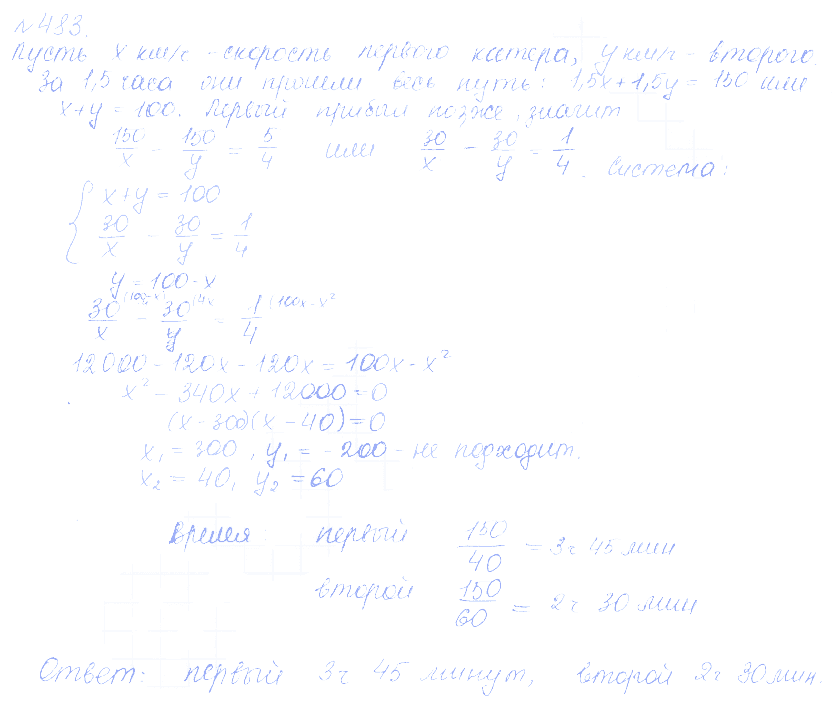 №483.
Пусть x км/ч - скорость первого катера, y км/ч - второго.
За 1,5 часа они прошли весь путь: 1,5x+1,5y = 150 или
x+y = 100. Первый прибыл позже, значит
150/x - 150/y = 5/4 или 30/x - 30/y = 1/4. Система:
{ x+y = 100
30/x - 30/y = 1/4
y = 100-x
30/x - 30/y = 1/4 (100x-x²
12000 - 120x - 120x = 100x - x²
x² - 340x + 12000 = 0
(x-300)(x-40)=0
x₁ = 300, y₁ = -200 - не подходит.
x₂ = 40, y₂ = 60
Время: первый 150/40 = 3ч 45 мин
второй 150/60 = 2ч 30 мин
Ответ: первый 3ч 45 минут, второй 2ч 30 мин.